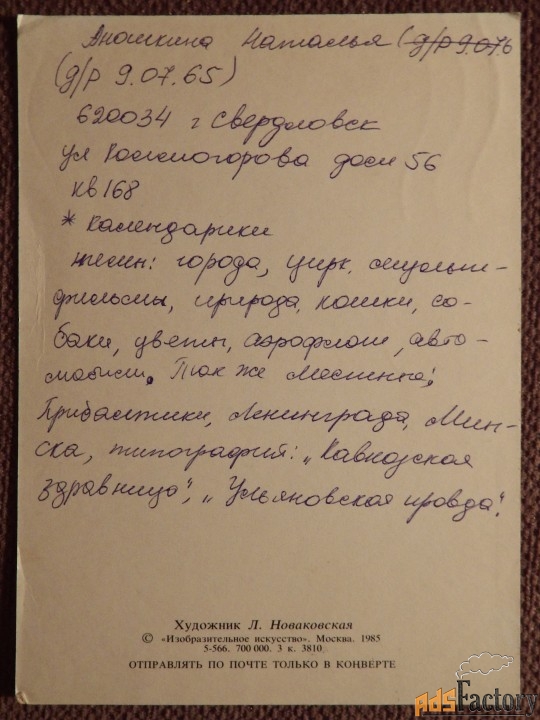 Аношкина Наталья (д/р 9.07.6
(д/р 9.07.65)
620034 г Свердловск
ул Колмогорова дом 56
кв 168
* календарики
темы: города, цирк, мульти-
фильмы, природа, кошки, со-
баки, цветы, аэрофлот, авто-
мобили. Так же местные;
Прибалтики, Ленинграда, Мин-
ска, типографий: „Кавказская
здравница", „Ульяновская правда".
Художник Л. Новаковская
© «Изобразительное искусство». Москва. 1985
5-566. 700 000. 3 к. 3810
ОТПРАВЛЯТЬ ПО ПОЧТЕ ТОЛЬКО В КОНВЕРТЕ
adsFactory